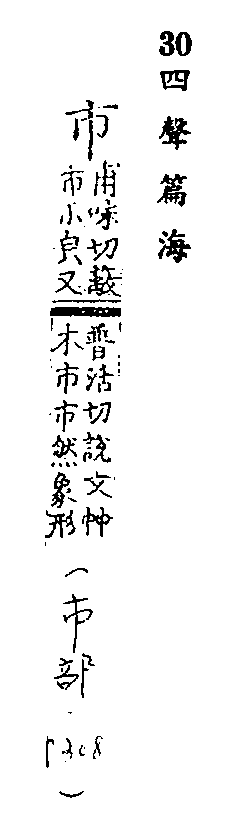 30四聲篇海
市
甫味切蔽
市小皃又
普活切說文艸
木市市然象形
(市部.p308)